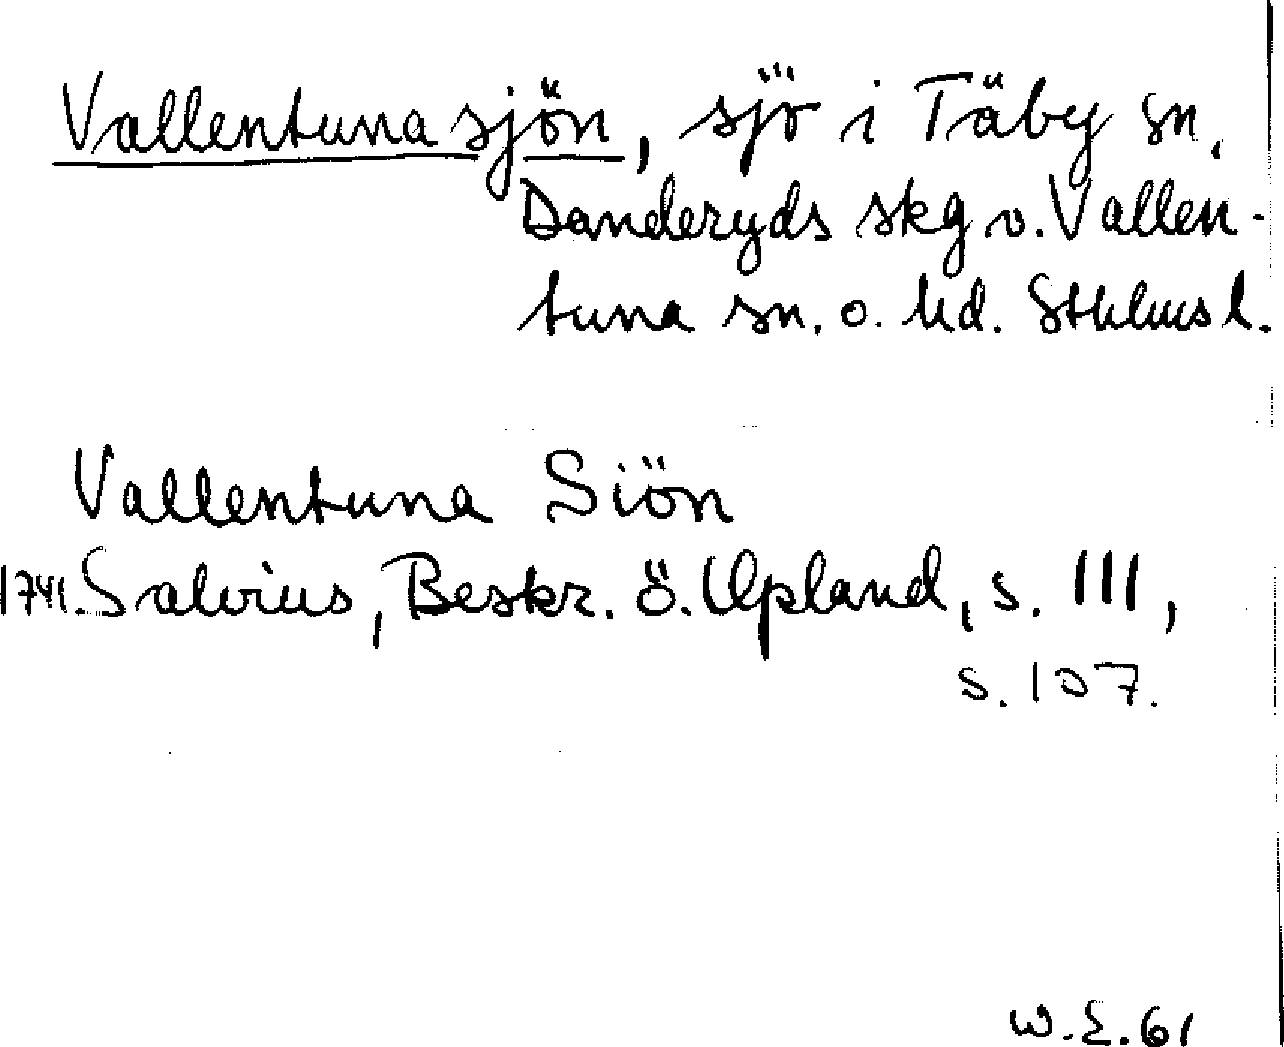 Vallentunasjön, sjö i Täby sn,
Danderyds skg o. Vallen-
tuna sn. o. hd. Sthlms l.
Vallentuna Siön
1741. Salvius, Beskr. ö. Upland, s. 111,
s. 107.
W.E.61